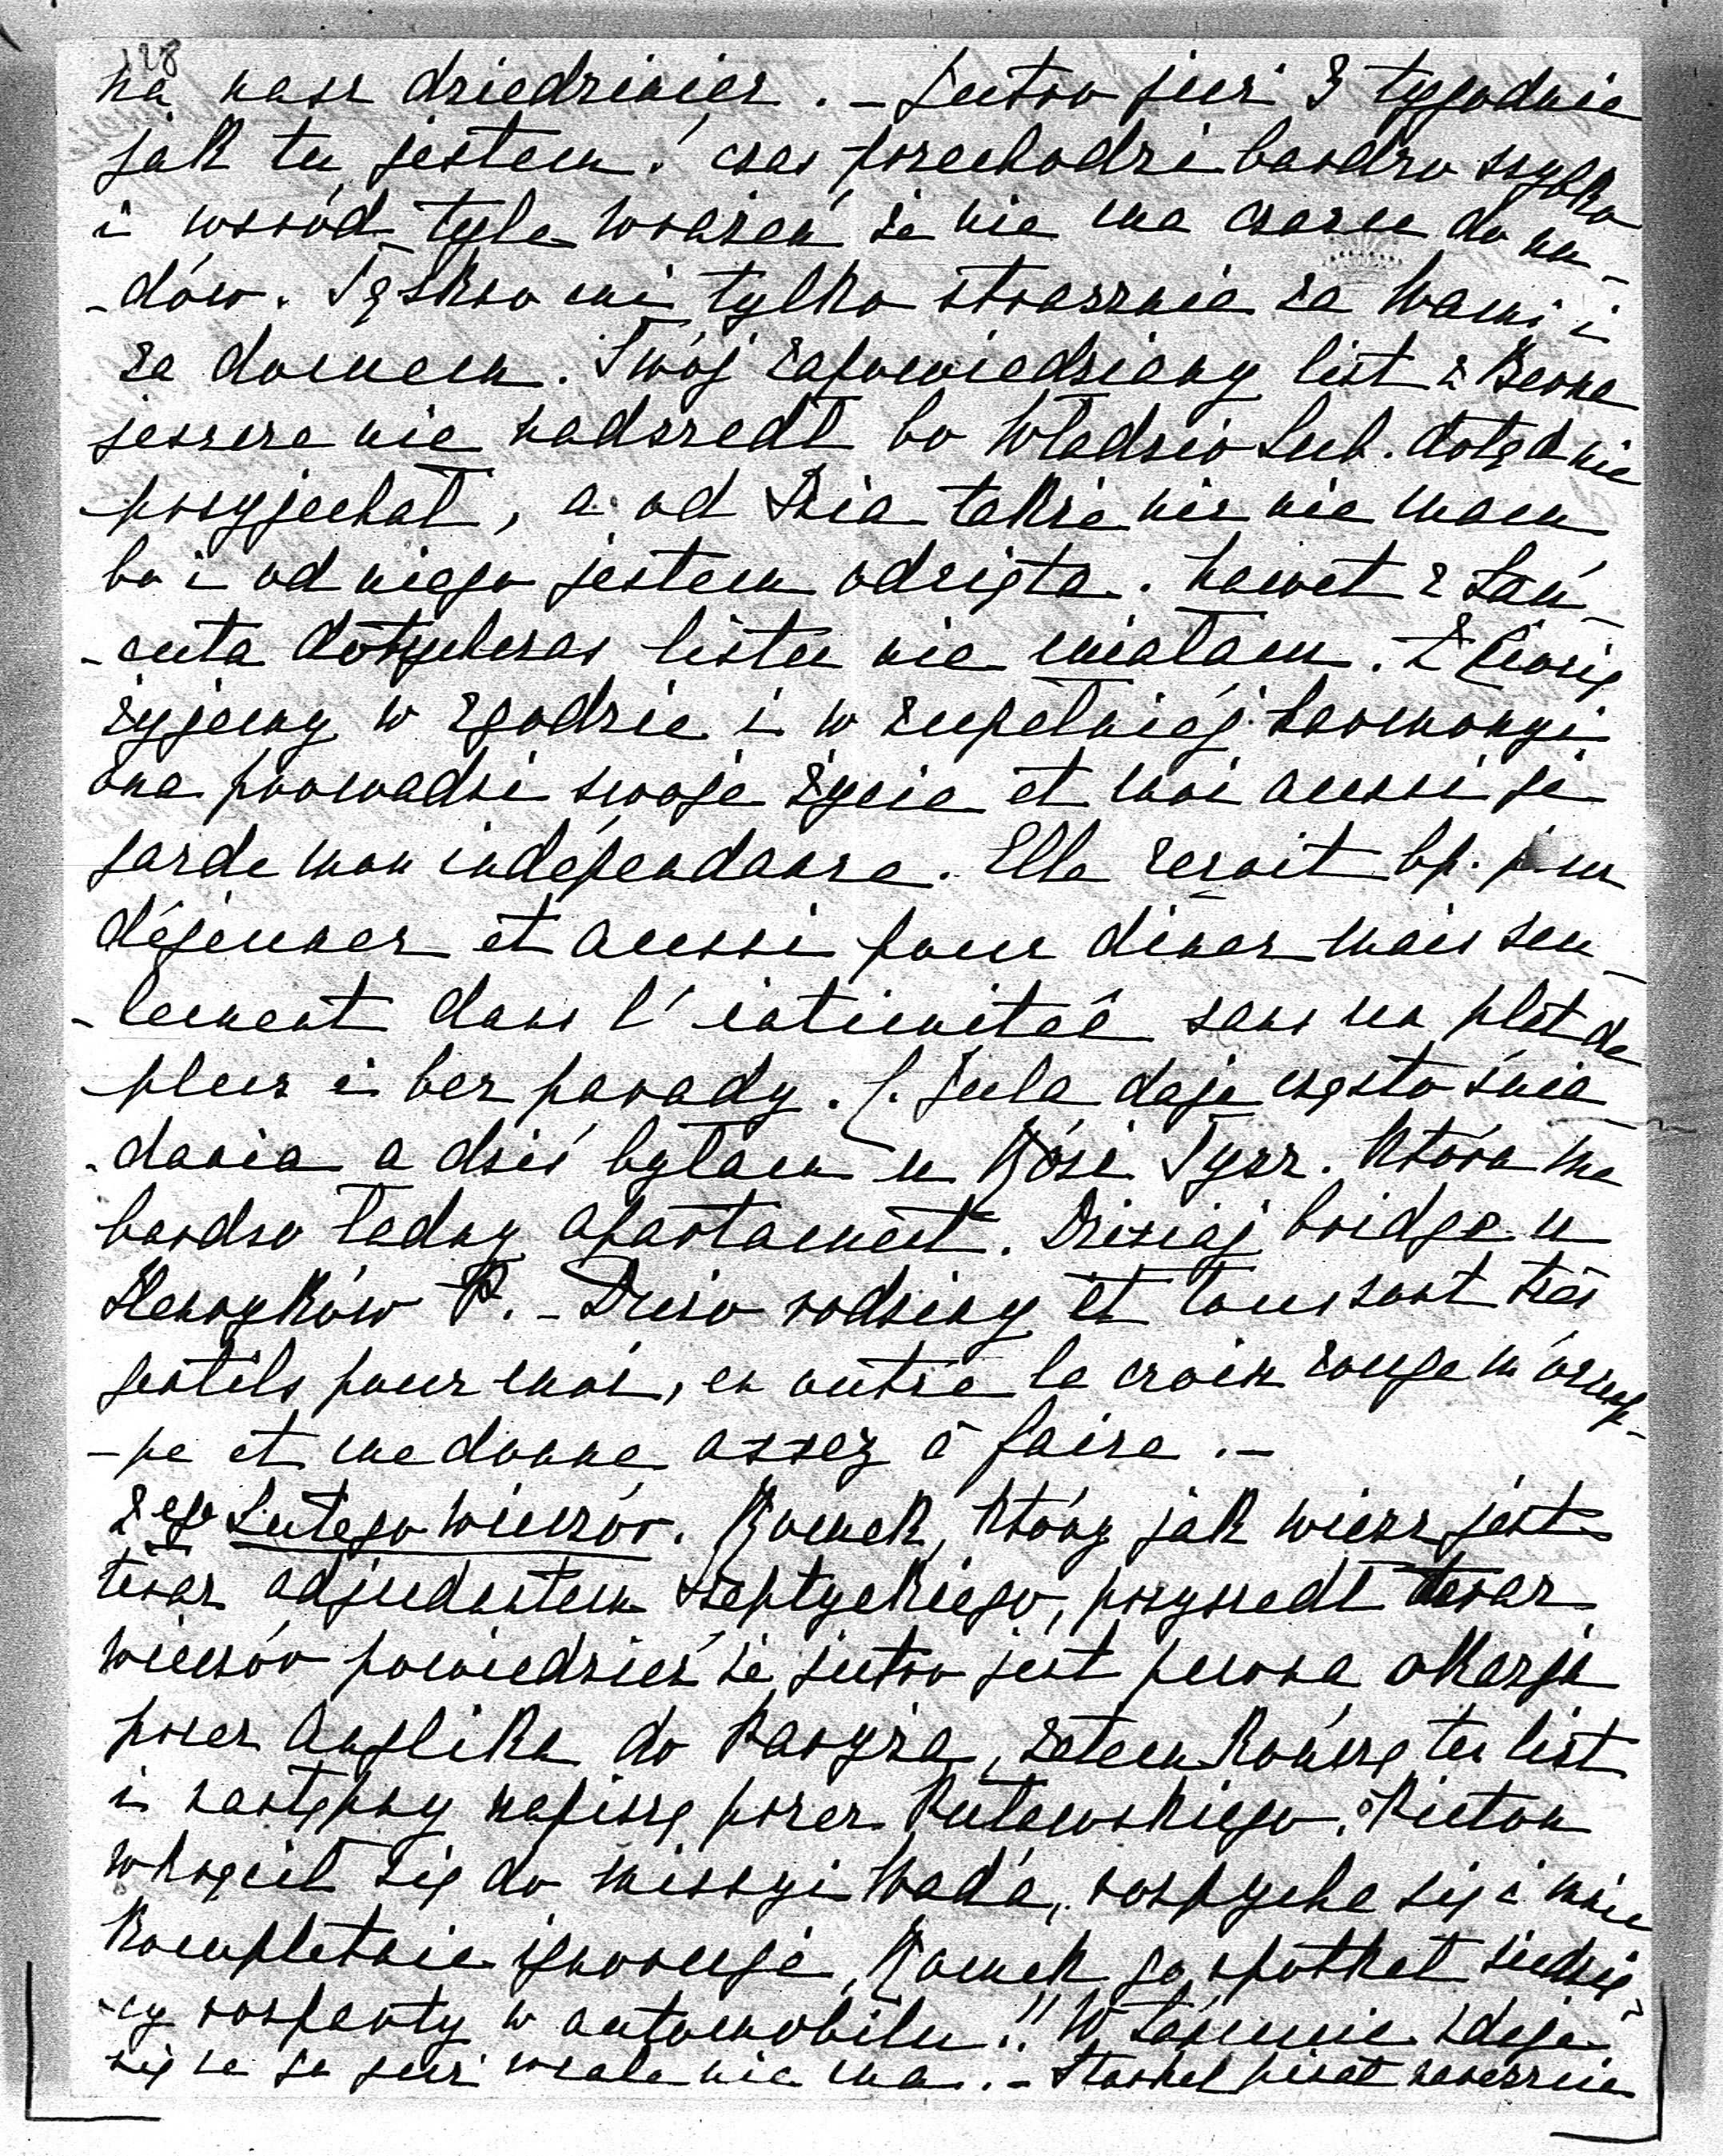 128
na nasz dziedziniec. - Jutro już 3 tygodnie
jak tu jestem! czas przechodzi bardzo szybko
i wsród tyle wrażeń że nie ma czasu do nu-
-dów. Tęskno mi tylko strasznie za Wami i
za domem. Twój zapowiedziany list z Berna
jeszcze nie nadszedł bo Władzio Lub. dotąd nie
przyjechał, a od także nic nie mam
bo i od niego jestem odcięta. Nawet z Łań-
-cuta dotychczas listu nie miałam. Z
żyjemy w zgodzie i w zupełniéj harmonyi
ona prowadzi swoje życie et moi aussi je
garde mon indépendance. Elle reçoit bp. pour
déjeuner et aussi pour diner mais seu-
-lement dans l'intimitée sans un plat de
plus i bez parady. C. Jula daje często śnia-
-dania a dziś byłam u Rózi Tysz. która ma
bardzo ładny apartament. Dzisiaj bridge u
Henryków P. - Dużo rodziny et tous sont très
gentils pour moi, en outre la croix rouge m'occup-
-pe et me donne assez à faire. -
2go Lutego wieczór. Romek, który jak wiesz jest
teraz adjudantem Szeptyckiego, przyszedł teraz
wieczór powiedzieć że jutro jest pewna okazja
przez Anglika do Paryża, zatem kończę ten list
i następny napiszę przez Rutowskiego.
wkręcił się do missyi Wade'a, rozpycha się i mnie
kompletnie ignoruje, Romek go spotkał siedzą-
-cy rozparty w automobilu!! W Łańcucie zdaje
się że go już wcale nie ma. - pisał zawsze nie